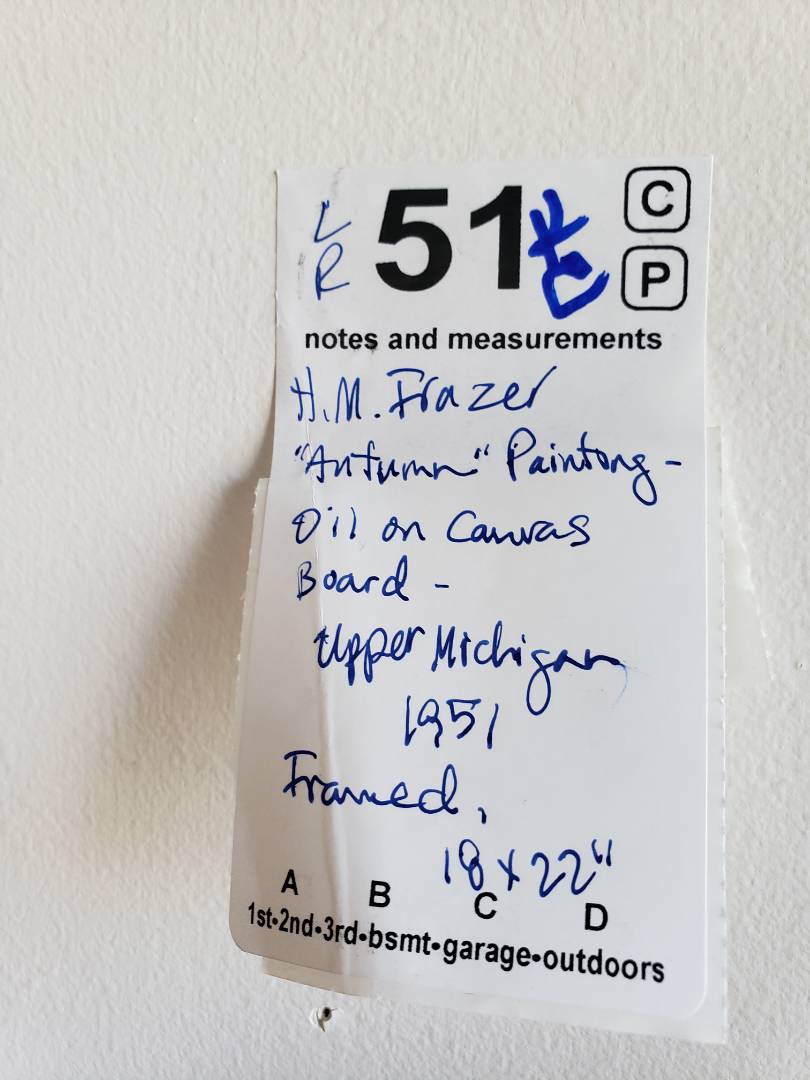 L
R
51
C
P
notes and measurements
H.M. Frazer
"Autumn" Painting -
Oil on Canvas
Board -
Upper Michigan
1951
Framed,
18 x 22"
A B C D
1st•2nd•3rd•bsmt•garage•outdoors